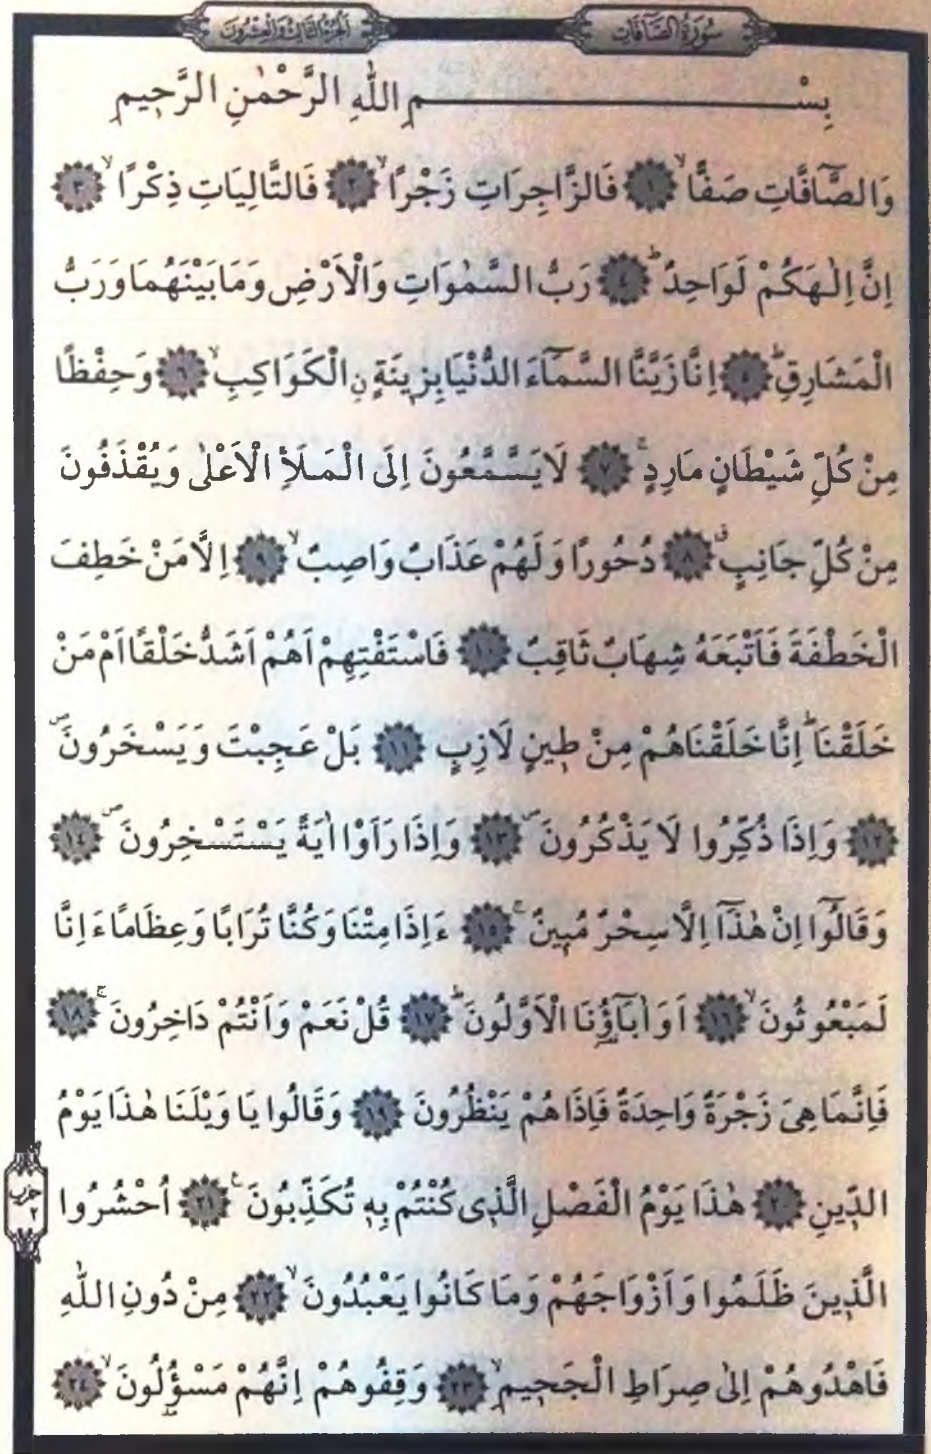 سُورَةُ الصَّآفَّاتِ
اَلْجُزْءُ الثَّالِثُ وَالْعِشْرُونَ
بِسْمِ اللّٰهِ الرَّحْمٰنِ الرَّحٖيمِ
وَالصَّآفَّاتِ صَفًّاۙ ﴿١﴾ فَالزَّاجِرَاتِ زَجْرًاۙ ﴿٢﴾ فَالتَّالِيَاتِ ذِكْرًاۙ ﴿٣﴾
اِنَّ اِلٰهَكُمْ لَوَاحِدٌؕ ﴿٤﴾ رَبُّ السَّمٰوَاتِ وَالْاَرْضِ وَمَا بَيْنَهُمَا وَرَبُّ
الْمَشَارِقِؕ ﴿٥﴾ اِنَّا زَيَّنَّا السَّمَٓاءَ الدُّنْيَا بِزٖينَةٍ ࣙالْكَوَاكِبِۙ ﴿٦﴾ وَحِفْظًا
مِنْ كُلِّ شَيْطَانٍ مَارِدٍۚ ﴿٧﴾ لَا يَسَّمَّعُونَ اِلَى الْمَلَاِ الْاَعْلٰى وَيُقْذَفُونَ
مِنْ كُلِّ جَانِبٍۗ ﴿٨﴾ دُحُورًا وَلَهُمْ عَذَابٌ وَاصِبٌۙ ﴿٩﴾ اِلَّا مَنْ خَطِفَ
الْخَطْفَةَ فَاَتْبَعَهُ شِهَابٌ ثَاقِبٌ ﴿١٠﴾ فَاسْتَفْتِهِمْ اَهُمْ اَشَدُّ خَلْقًا اَمْ مَنْ
خَلَقْنَاؕ اِنَّا خَلَقْنَاهُمْ مِنْ طٖينٍ لَازِبٍ ﴿١١﴾ بَلْ عَجِبْتَ وَيَسْخَرُونَࣕ
﴿١٢﴾ وَاِذَا ذُكِّرُوا لَا يَذْكُرُونَࣕ ﴿١٣﴾ وَاِذَا رَاَوْا اٰيَةً يَسْتَسْخِرُونَࣕ ﴿١٤﴾
وَقَالُٓوا اِنْ هٰذَٓا اِلَّا سِحْرٌ مُبٖينٌۚ ﴿١٥﴾ ءَاِذَا مِتْنَا وَكُنَّا تُرَابًا وَعِظَامًا ءَاِنَّا
لَمَبْعُوثُونَۙ ﴿١٦﴾ اَوَاٰبَٓاؤُ۬نَا الْاَوَّلُونَؕ ﴿١٧﴾ قُلْ نَعَمْ وَاَنْتُمْ دَاخِرُونَۚ ﴿١٨﴾
فَاِنَّمَا هِىَ زَجْرَةٌ وَاحِدَةٌ فَاِذَا هُمْ يَنْظُرُونَ ﴿١٩﴾ وَقَالُوا يَا وَيْلَنَا هٰذَا يَوْمُ
الدّٖينِ ﴿٢٠﴾ هٰذَا يَوْمُ الْفَصْلِ الَّذٖى كُنْتُمْ بِهٖ تُكَذِّبُونَࣖ ﴿٢١﴾ اُحْشُرُوا
حزب
٢
الَّذٖينَ ظَلَمُوا وَاَزْوَاجَهُمْ وَمَا كَانُوا يَعْبُدُونَۙ ﴿٢٢﴾ مِنْ دُونِ اللّٰهِ
فَاهْدُوهُمْ اِلٰى صِرَاطِ الْجَحٖيمِۙ ﴿٢٣﴾ وَقِفُوهُمْ اِنَّهُمْ مَسْؤُ۫لُونَۙ ﴿٢٤﴾